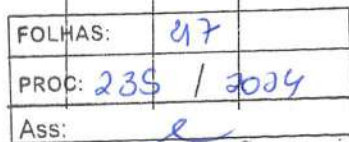 FOLHAS:
PROC: 235 / 2024
Ass: